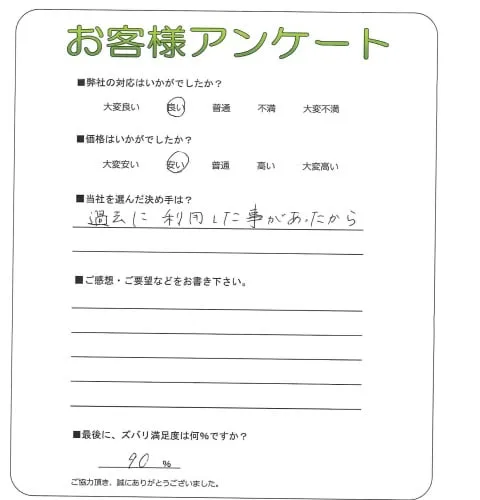 お客様アンケート
■弊社の対応はいかがでしたか？
大変良い 良い 普通 不満 大変不満
■価格はいかがでしたか？
大変安い 安い 普通 高い 大変高い
■当社を選んだ決め手は？
過去に利用した事があったから
■ご感想・ご要望などをお書き下さい。
■最後に、ズバリ満足度は何%ですか？
90 %
ご協力頂き、誠にありがとうございました。